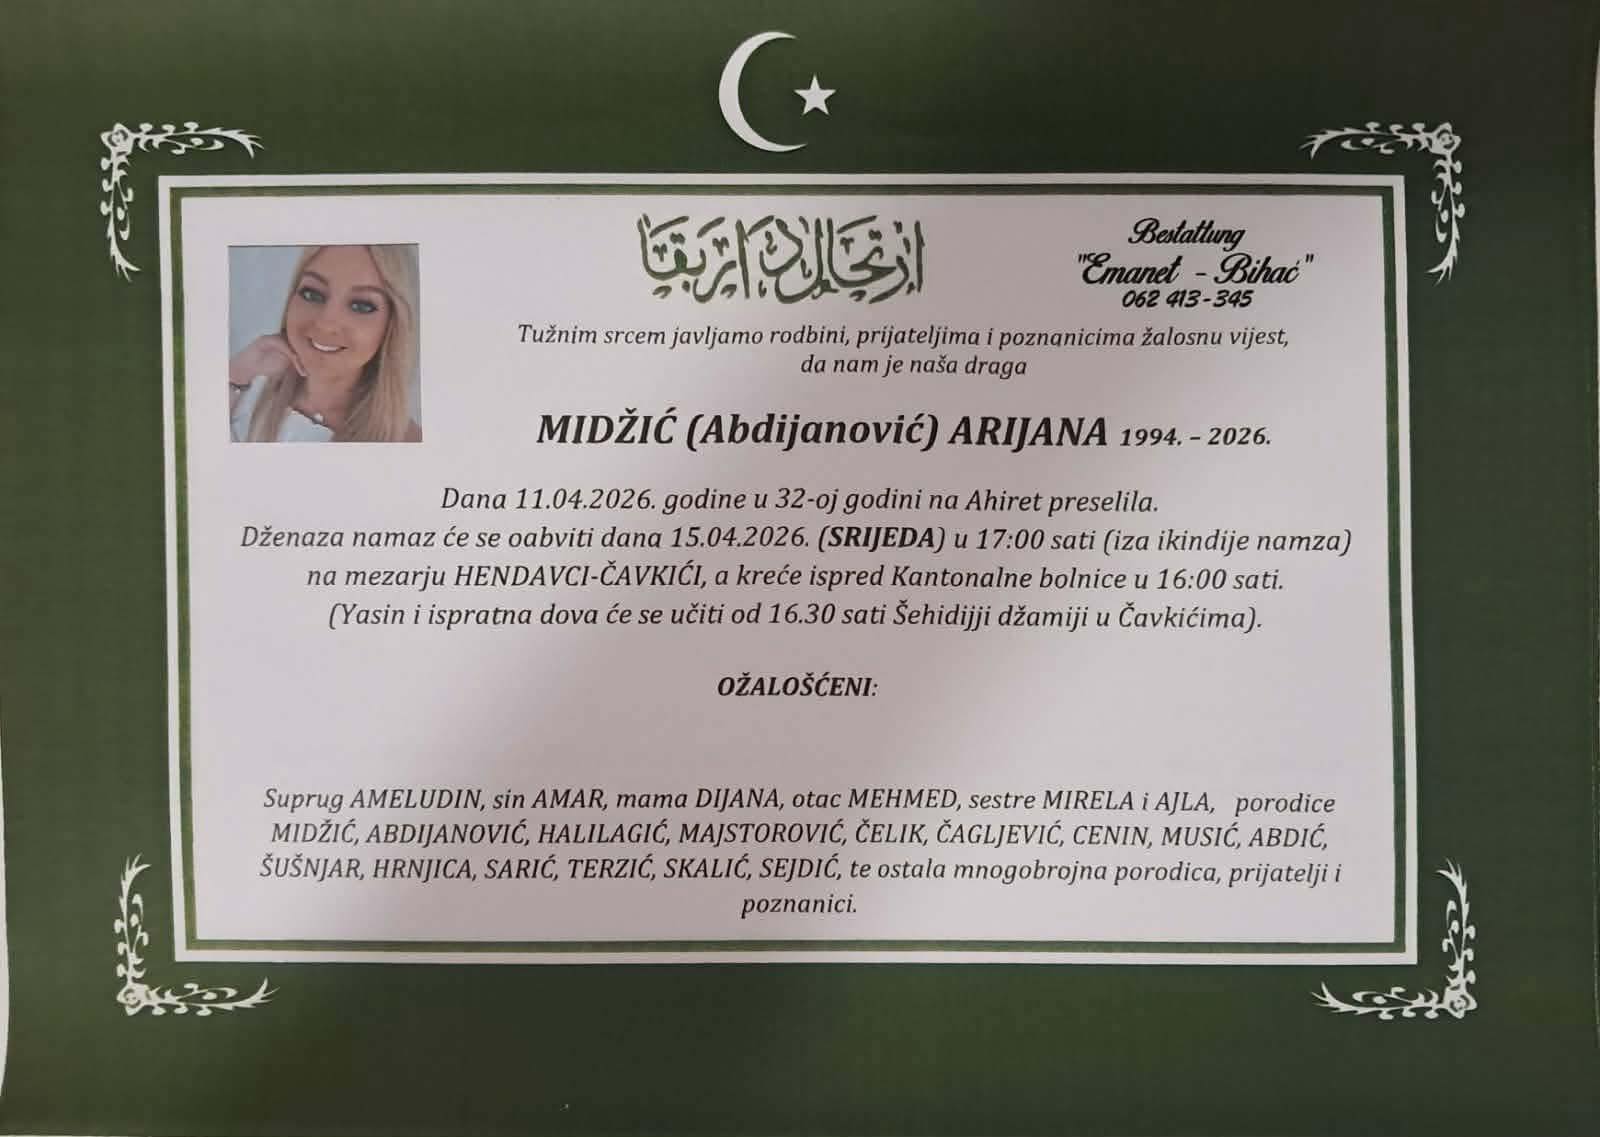 ارتحال دار بقا
Bestattung
"Emanet - Bihać"
062 413-345
Tužnim srcem javljamo rodbini, prijateljima i poznanicima žalosnu vijest,
da nam je naša draga
MIDŽIĆ (Abdijanović) ARIJANA 1994. – 2026.
Dana 11.04.2026. godine u 32-oj godini na Ahiret preselila.
Dženaza namaz će se oabviti dana 15.04.2026. (SRIJEDA) u 17:00 sati (iza ikindije namza)
na mezarju HENDAVCI-ČAVKIĆI, a kreće ispred Kantonalne bolnice u 16:00 sati.
(Yasin i ispratna dova će se učiti od 16.30 sati Šehidijji džamiji u Čavkićima).
OŽALOŠĆENI:
Suprug AMELUDIN, sin AMAR, mama DIJANA, otac MEHMED, sestre MIRELA i AJLA, porodice
MIDŽIĆ, ABDIJANOVIĆ, HALILAGIĆ, MAJSTOROVIĆ, ČELIK, ČAGLJEVIĆ, CENIN, MUSIĆ, ABDIĆ,
ŠUŠNJAR, HRNJICA, SARIĆ, TERZIĆ, SKALIĆ, SEJDIĆ, te ostala mnogobrojna porodica, prijatelji i
poznanici.